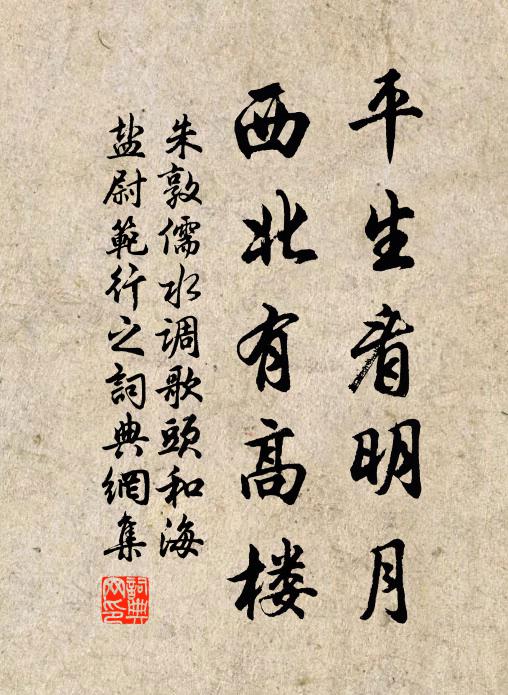 平生看明月
西北有高楼
朱敦儒水调歌頭和海
盐尉範行之詞典網集
詞典
网印